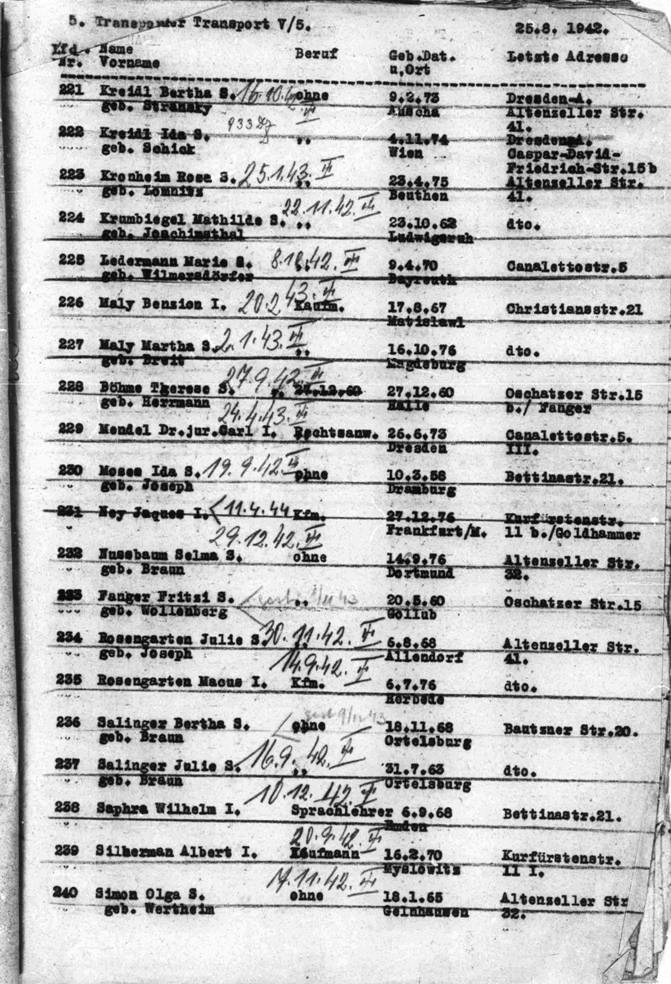 5. Transport V/5. 25.8. 1942.
Lfd. Name Beruf Geb.Dat. Letzte Adresse
Nr. Vorname u.Ort
221 Kreidl Bertha S. 16.10. ohne 9.2.73 Dresden-A.
geb. Stransky Auscha Altenzeller Str.
222 Kreidl Ida S. 933 " 4.11.74 41. Dresden-A.
geb. Schick Wien Caspar-David-
Friedrich-Str.15b
223 Kronheim Rosa S. 25.1.43. VI " 23.4.75 Altenzeller Str.
geb. Lomnitz Beuthen 41.
22.11.42. VI
224 Krumbiegel Mathilde S. " 23.10.62 dto.
geb. Joachimsthal
225 Ledermann Marie S. 8.10.42. VI " 9.4.70 Canalettostr.5
geb. Wilmersdörfer Bayreuth
226 Maly Benzion I. 20.2.43. VI Kaufm. 17.8.67 Christiansstr.21
Matislawl
227 Maly Martha S. 2.1.43. VI " 16.10.76 dto.
geb. Breit Magdeburg
27.9.42. VI
228 Böhme Therese S. 27.12.60 27.12.60 Oschatzer Str.15
geb. Herrmann Halle b./ Fanger
24.4.43. VI
229 Mendel Dr.jur.Carl I. Rechtsanw. 26.6.73 Canalettostr.5.
Dresden III.
230 Moses Ida S. 19.9.42. VI ohne 10.3.58 Bettinastr.21.
geb. Joseph Dramburg
231 Ney Jaques I. 11.4.44 Kfm. 27.12.76 Kurfürstenstr.
Frankfurt/M. 11 b./Goldhammer
29.12.42. VI
232 Nussbaum Selma S. ohne 14.9.76 Altenzeller Str.
geb. Braun Dortmund 32.
233 Fanger Fritzi S. " 20.5.60 Oschatzer Str.15
geb. Wollenberg Gollub
234 Rosengarten Julie S. 30.11.42. VI 6.8.68 Altenzeller Str.
geb. Joseph Allendorf 41.
14.9.42. VI
235 Rosengarten Macus I. Kfm. 6.7.76 dto.
Herbede
236 Salinger Bertha S. ohne 18.11.68 Bautzner Str.20.
geb. Braun Ortelsburg
237 Salinger Julie S. 16.9.42. VI " 31.7.63 dto.
geb. Braun Ortelsburg
10.12.42. VI
238 Saphra Wilhelm I. Sprachlehrer 6.9.68 Bettinastr.21.
Emden
20.9.42. VI
239 Silberman Albert I. Kaufmann 16.2.70 Kurfürstenstr.
Myslowitz 11 I.
17.11.42. VI
240 Simon Olga S. ohne 18.1.65 Altenzeller Str
geb. Wertheim Gelnhausen 32.